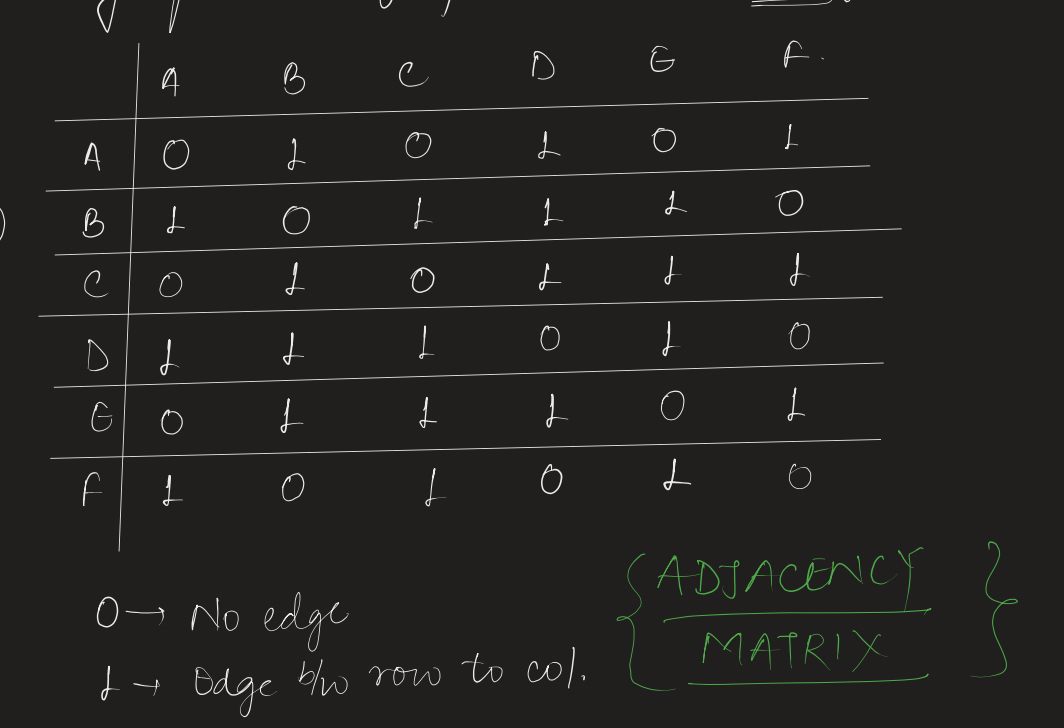 A B C D E F.
A 0 1 0 1 0 1
B 1 0 1 1 1 0
C 0 1 0 1 1 1
D 1 1 1 0 1 0
E 0 1 1 1 0 1
F 1 0 1 0 1 0
0 → No edge
1 → Edge b/w row to col.
{ADJACENCY
MATRIX}